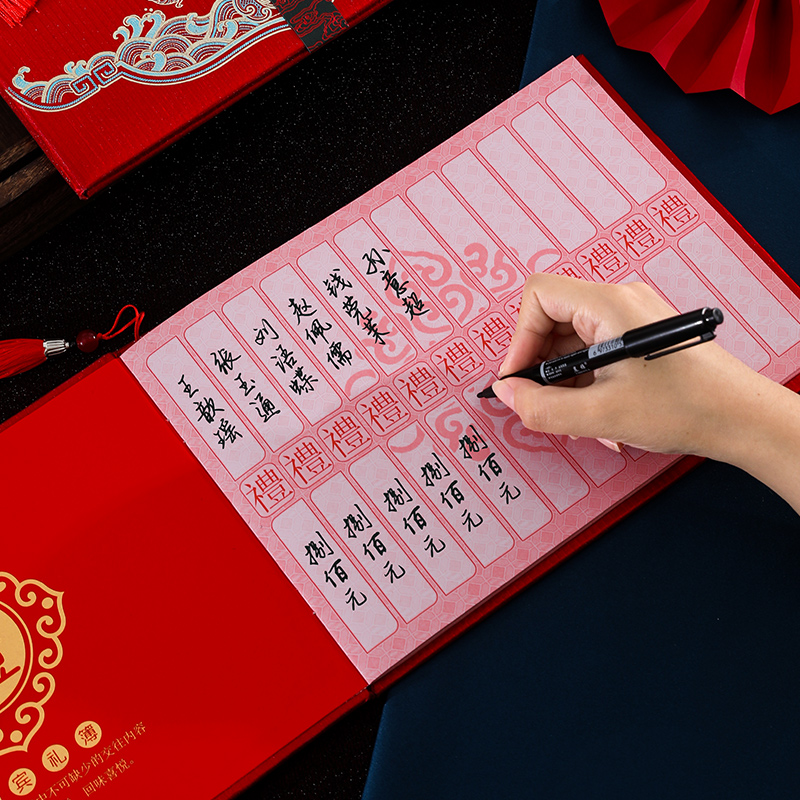 王歆瑶
张玉通
刘语蝶
赵佩儒
钱
孙意超
禮禮禮禮禮禮禮禮禮禮
捌佰元
捌佰元
捌佰元
捌佰元
捌佰元
宾礼簿
中不可缺少的交往内容
回味喜悦。